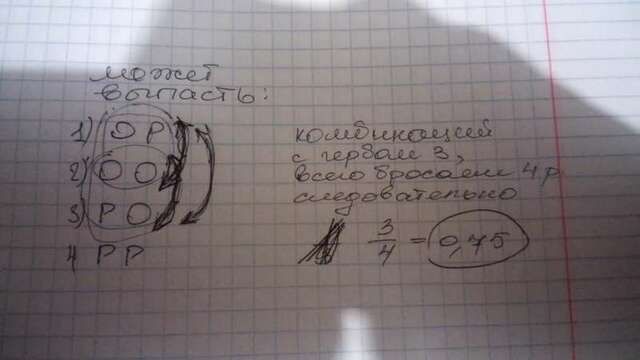 может
выпасть:
1) О Р
2) О О
3) Р О
4 Р Р
комбинаций
с гербом 3,
всего бросаем 4 р
следовательно
3/4 = 0,75